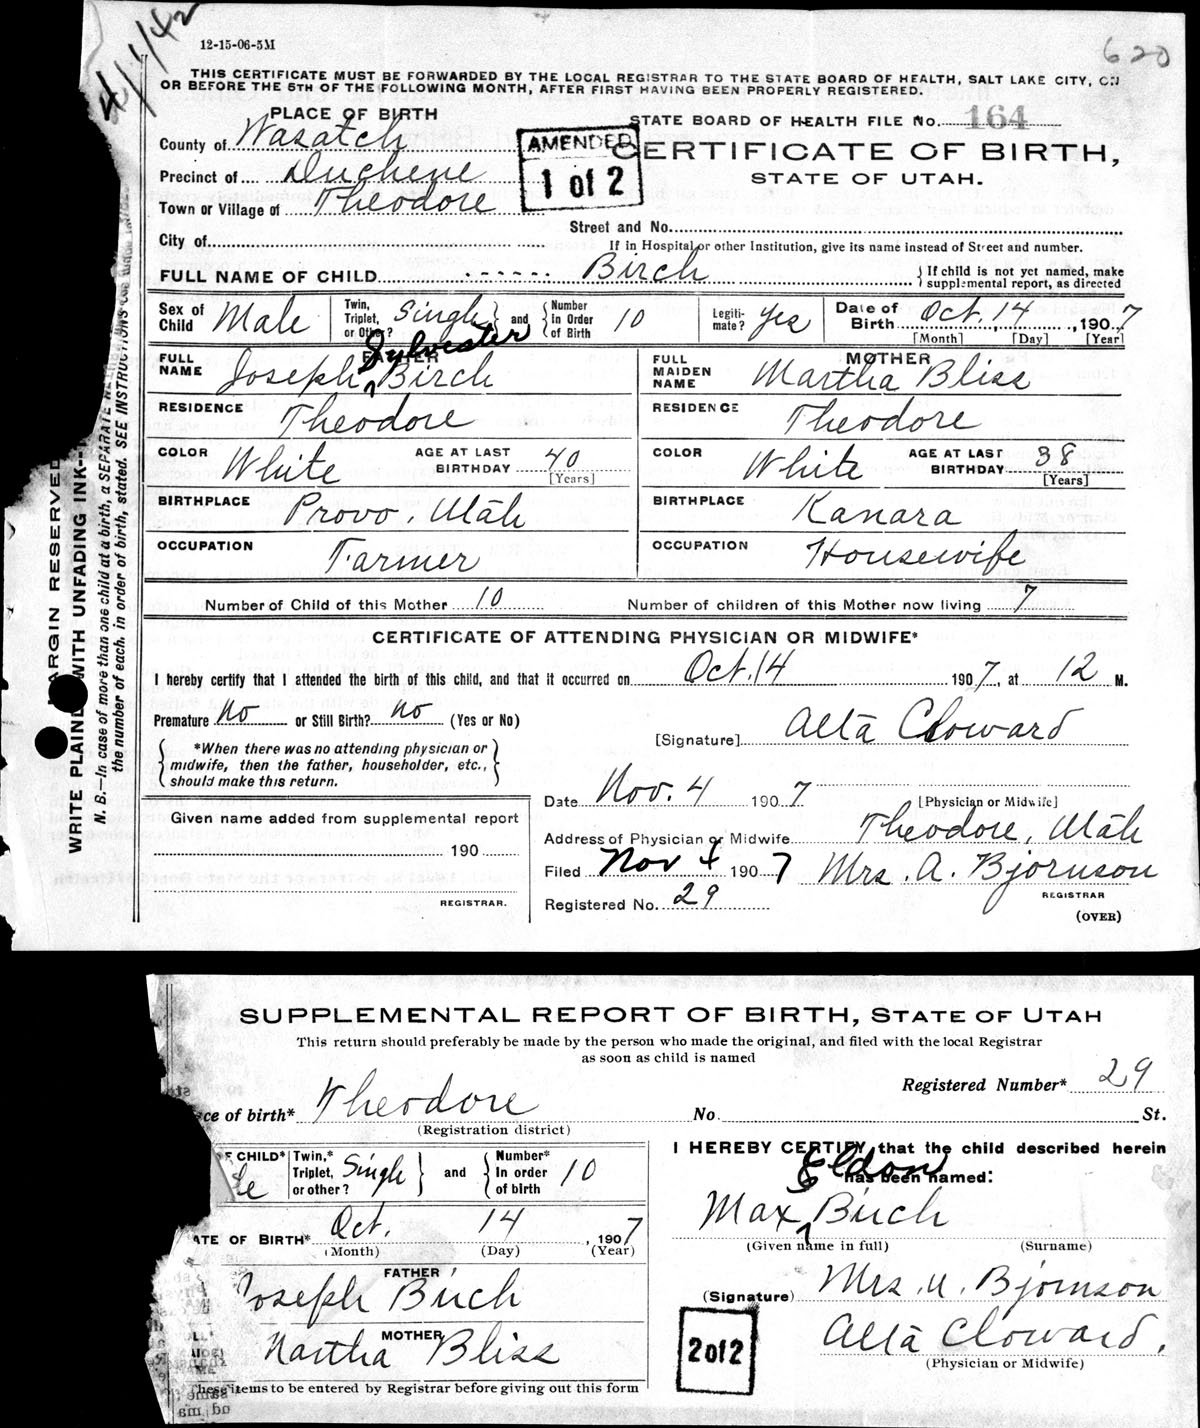 4/1/42
12-15-06-5M
620
THIS CERTIFICATE MUST BE FORWARDED BY THE LOCAL REGISTRAR TO THE STATE BOARD OF HEALTH, SALT LAKE CITY, ON
OR BEFORE THE 5TH OF THE FOLLOWING MONTH, AFTER FIRST HAVING BEEN PROPERLY REGISTERED.
PLACE OF BIRTH
STATE BOARD OF HEALTH FILE No. 164
County of Wasatch
AMENDED
1 of 2
CERTIFICATE OF BIRTH,
STATE OF UTAH.
Precinct of Duchene
Town or Village of Theodore
Street and No.
City of
If in Hospital or other Institution, give its name instead of Street and number.
FULL NAME OF CHILD ------ Birch
If child is not yet named, make
supplemental report, as directed
Sex of Child Male
Twin, Triplet, or Other? Single and Number In Order of Birth 10
Legiti-mate? Yes
Date of Birth Oct. 14, 1907
[Month] [Day] [Year]
FATHER
FULL NAME Joseph Sylvester Birch
MOTHER
FULL MAIDEN NAME Martha Bliss
RESIDENCE Theodore
RESIDENCE Theodore
COLOR White AGE AT LAST BIRTHDAY 40 [Years]
COLOR White AGE AT LAST BIRTHDAY 38 [Years]
BIRTHPLACE Provo, Utah
BIRTHPLACE Kanara
OCCUPATION Farmer
OCCUPATION Housewife
Number of Child of this Mother 10
Number of children of this Mother now living 7
CERTIFICATE OF ATTENDING PHYSICIAN OR MIDWIFE*
I hereby certify that I attended the birth of this child, and that it occurred on Oct. 14 1907, at 12 M.
Premature No or Still Birth? No (Yes or No)
[Signature] Alta Cloward
*When there was no attending physician or
midwife, then the father, householder, etc.,
should make this return.
Date Nov. 4 1907
[Physician or Midwife]
Given name added from supplemental report
190
REGISTRAR.
Address of Physician or Midwife Theodore, Utah
Filed Nov 4 1907 Mrs. A. Bjornson
REGISTRAR
Registered No. 29
(OVER)
MARGIN RESERVED
WRITE PLAINLY WITH UNFADING INK--
N. B.--In case of more than one child at a birth, a SEPARATE
the number of each, in order of birth, stated. SEE INSTRUCTIONS
SUPPLEMENTAL REPORT OF BIRTH, STATE OF UTAH
This return should preferably be made by the person who made the original, and filed with the local Registrar
as soon as child is named
Registered Number* 29
ce of birth* Theodore No. St.
(Registration district)
F CHILD* le
Twin,* Triplet, or other? Single and Number* In order of birth 10
ATE OF BIRTH* Oct. 14, 1907
(Month) (Day) (Year)
FATHER
Joseph Birch
MOTHER
Martha Bliss
These items to be entered by Registrar before giving out this form
I HEREBY CERTIFY that the child described herein
has been named:
Max Eldon Birch
(Given name in full) (Surname)
(Signature) Mrs. A. Bjornson
Alta Cloward.
(Physician or Midwife)
2 of 2